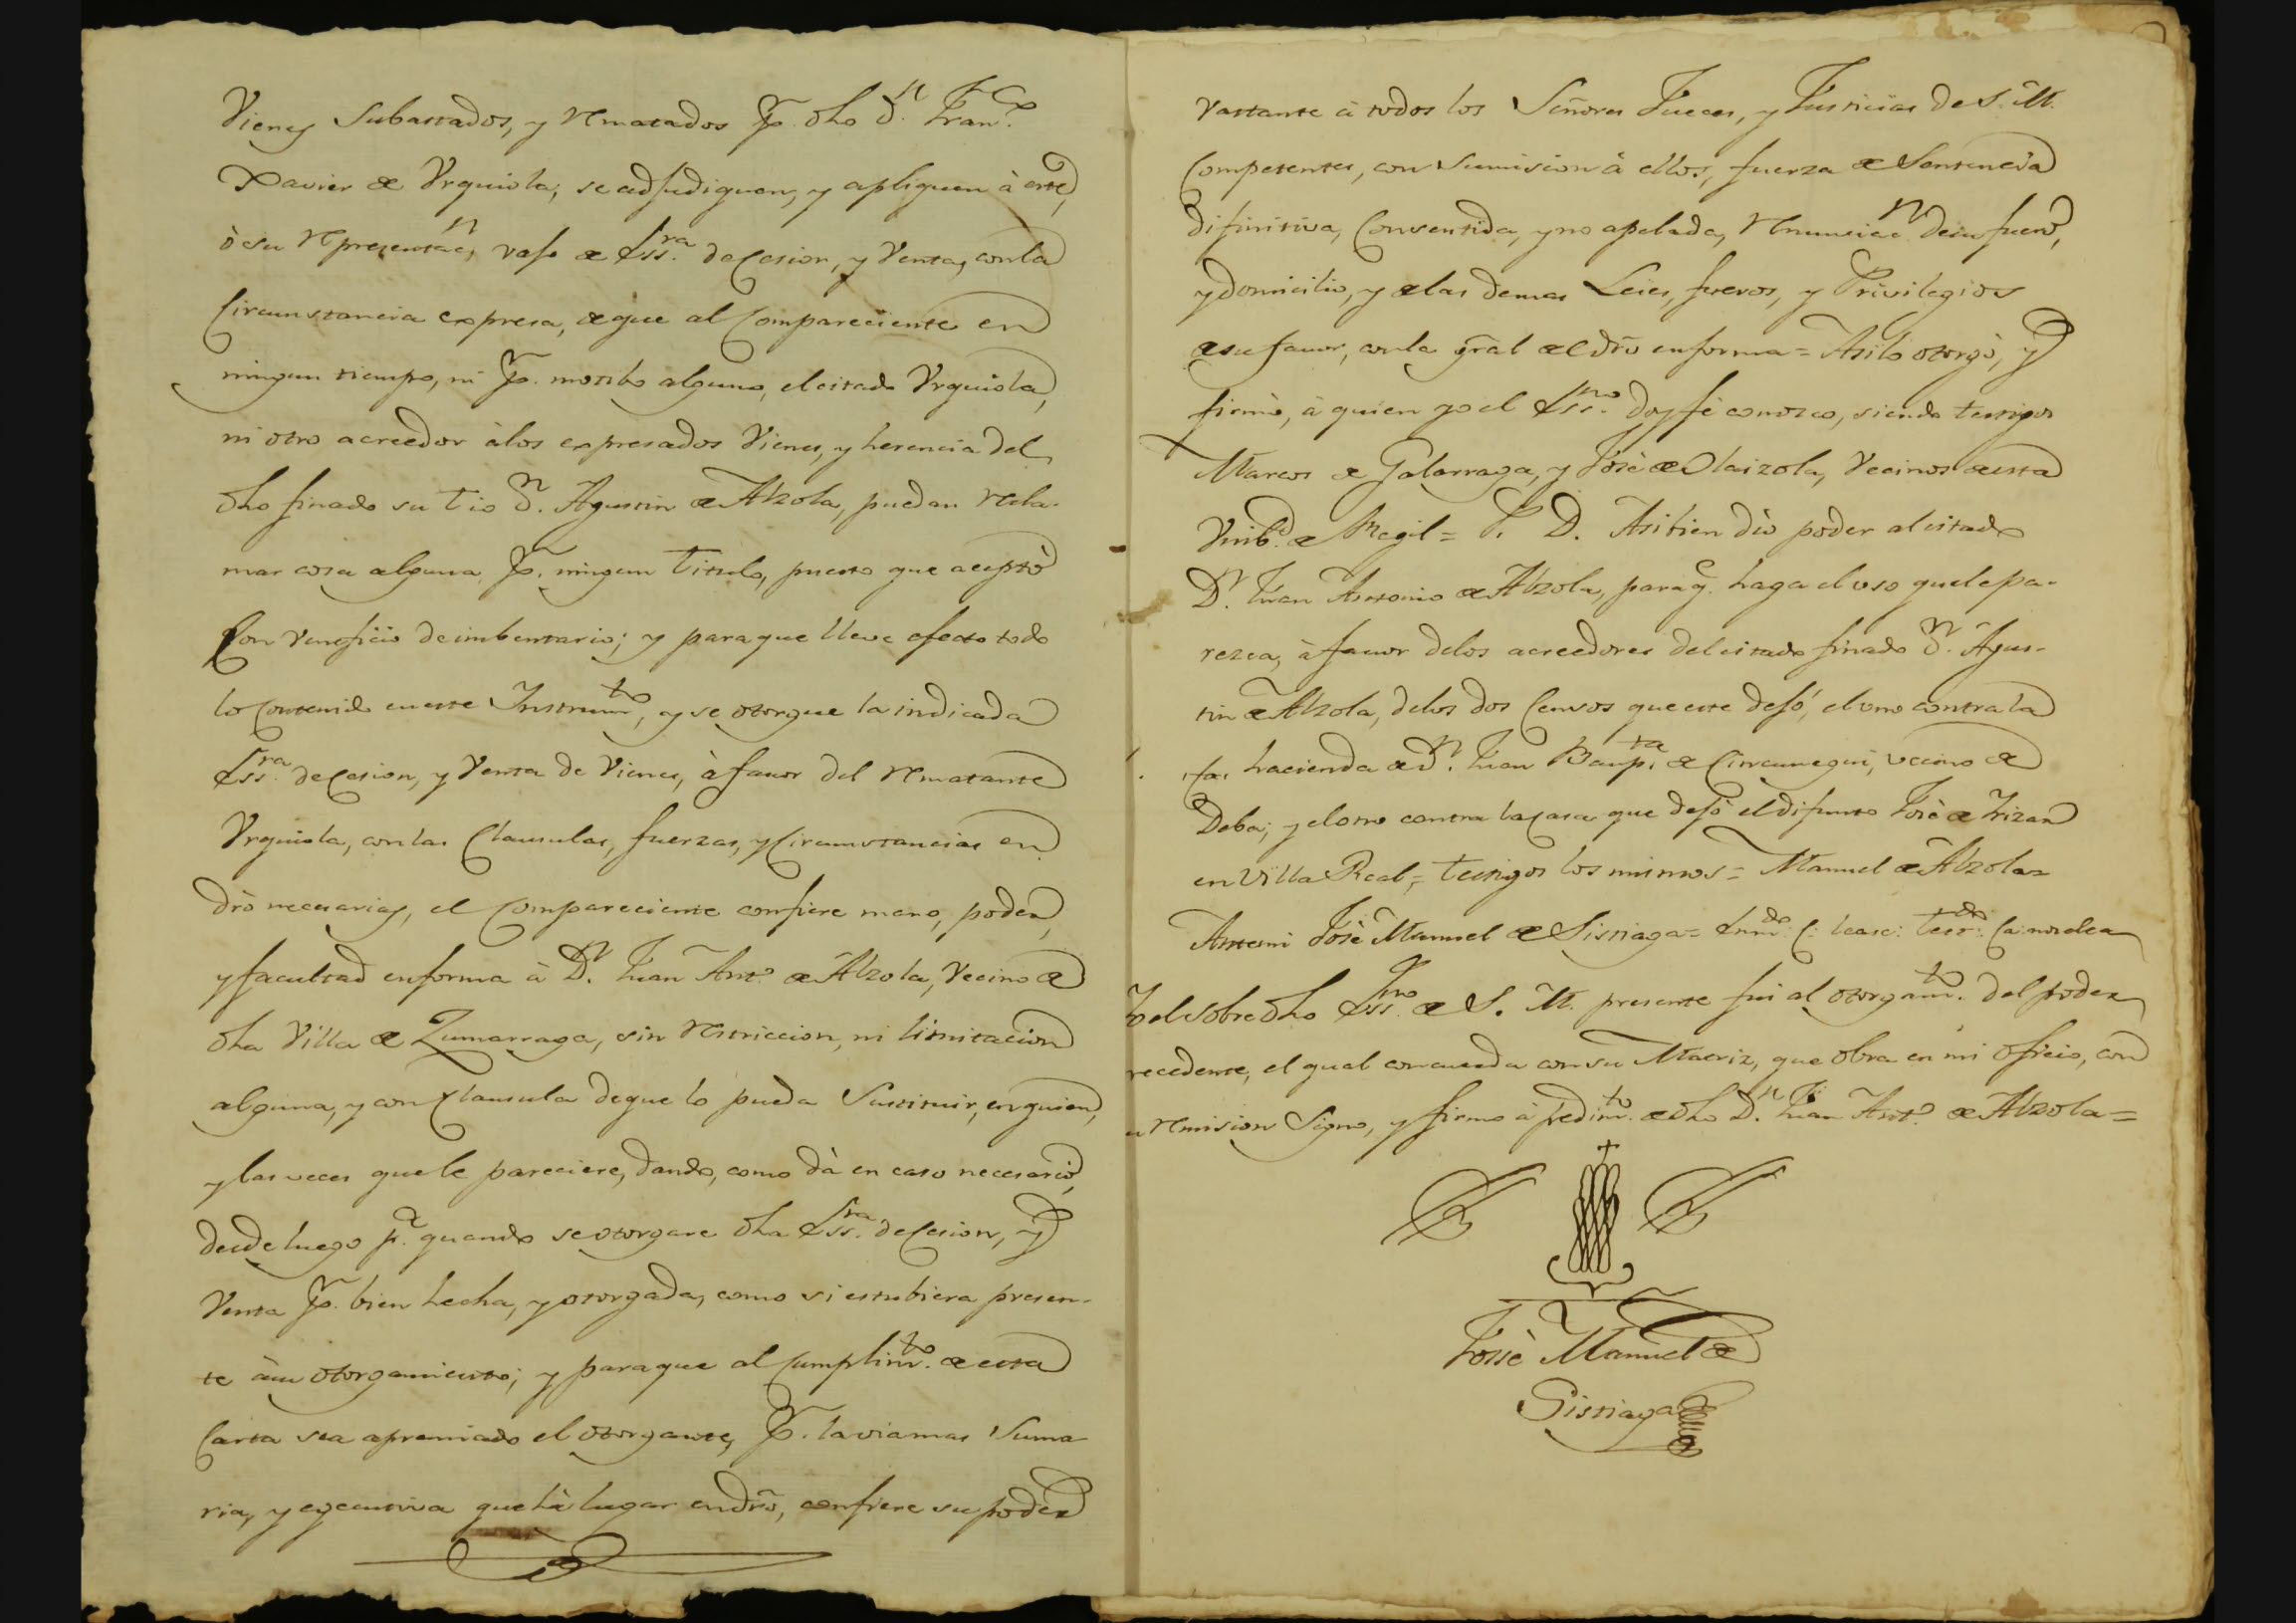 Vienes Subastados, y rematados pr. dho Dn. Franco.
Xavier de Vrquiola, se adjudiquen, y apliquen à este,
ò su representacn, vajo de Essra. de Cesion, y Venta, con la
Circunstancia expresa, de que al Compareciente en
ningun tiempo, ni pr. motibo alguno, el citado Vrquiola,
ni otro acreedor à los expresados Vienes, y herencia del
dho finado su tio Dn. Agustin de Alzola, puedan recla-
mar cosa alguna pr. ningun titulo, puesto que aceptò
Con Veneficio de imbentario; y para que lleve efecto todo
lo Contenido en este Instrumto, y se otorgue la indicada
Essra. de Cesion, y Venta de Vienes, à favor del rematante
Vrquiola, con las Clausulas, fuerzas, y Circunstancias en
dro necesarias, el Compareciente confiere mano, poder,
y facultad en forma à Dn. Juan Anto. de Alzola, Vecino de
dha Villa de Zumarraga, sin restriccion, ni limitacion
alguna, y con Clausula de que lo pueda Sustituir, en quien,
y las veces que le pareciere, dando, como dà en caso necesario,
desde luego pa. quando se otorgare dha Essra. de Cesion, y
Venta pr. bien hecha, y otorgada, como si estubiera presen-
te à su otorgamiento; y para que al Cumplimto. de esta
Carta sea apremiado el otorgante, pr. la via mas Suma-
ria, y egecutiva que hà lugar en dro, confiere su poder
Vastante à todos los Señores Jueces, y Justicias de S. M.
Competentes, con Sumision à ellos, fuerza de Sentencia
difinitiva, Consentida, y no apelada, renunciacn. de su fuero,
y domicilio, y de las demas Leies, fueros, y Privilegios
de su favor, con la gral del dro en forma = Asi lo otorgò, y
firmò, à quien yo el Essno. doy fè conozco, siendo testigos
Marcos de Galarraga, y Josè de Olaizola, Vecinos de esta
Unibd. de Regil = P. D. Asi bien diò poder al citado
Dn. Juan Antonio de Alzola, para q. haga el uso que le pa-
rezca, à favor de los acreedores del citado finado Dn. Agus-
tin de Alzola, de los dos Censos que este dejó, el uno contra la
hacienda de Dn. Juan Baupta. de Circunegui, vecino de
Deba; y el otro contra la Casa que dejò el difunto Josè de Irizar
en Villa Real = testigos los mismos = Manuel de Alzola =
Antemi Josè Manuel de Sistiaga = Enmdo: C: tease: testdo: Ca: no vlea
Yo el sobre dho Essno. de S. M. presente fui al otorgamto. del poder
recedente, el qual concuerda con su Matriz, que obra en mi oficio, con
u remision Signo, y firmo à pedimto. de dho Dn. Juan Anto. de Alzola =
Josè Manuel de
Sistiaga